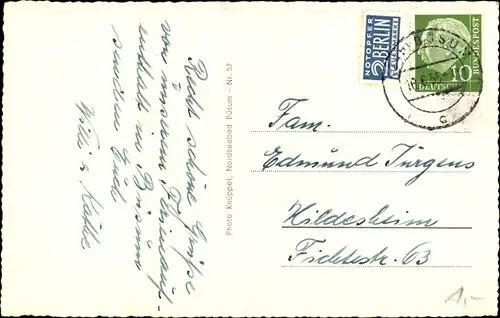 Recht schöne Grüße
von unserem Ferienauf-
enthalt in Büsum
senden Euch
Willi & Käthe
Photo Knüppel, Nordseebad Büsum - Nr. 57
NOTOPFER
2 BERLIN
STEUERMARKE
BÜSUM
c
10
DEUTSCHE
BUNDESPOST
Fam.
Edmund Türgens
Hildesheim
Fichtestr. 63
1,-